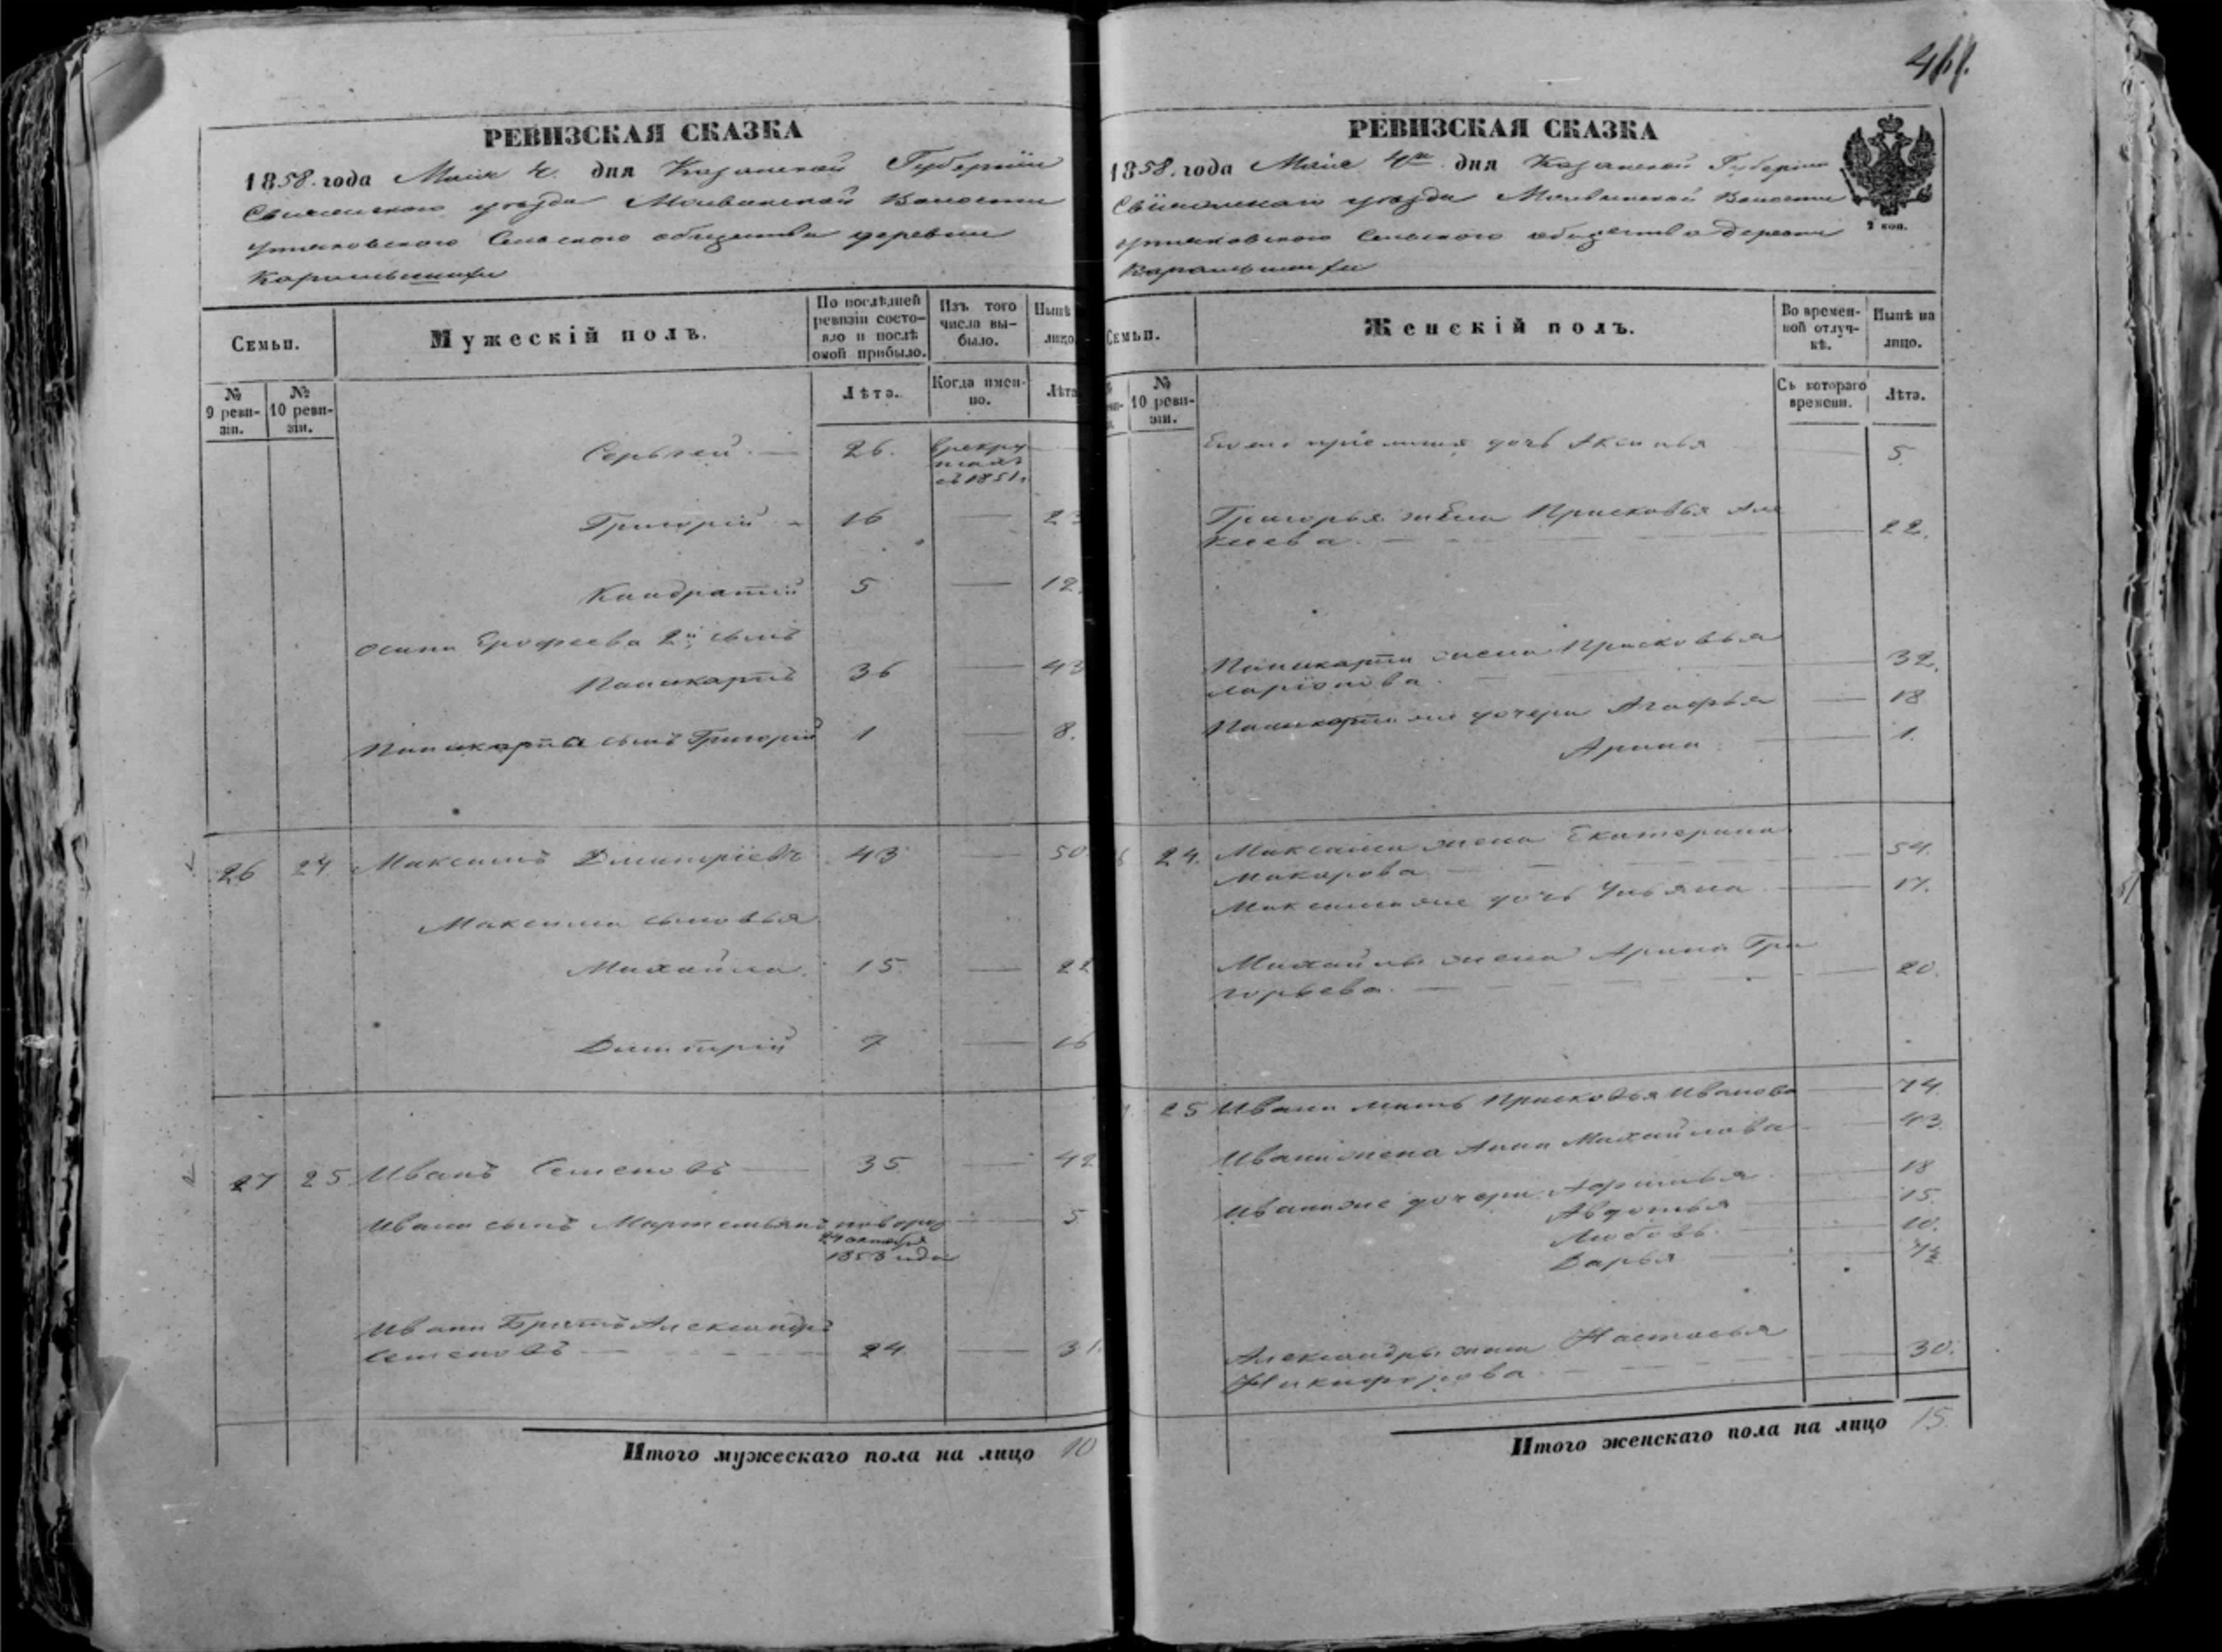 РЕВИЗСКАЯ СКАЗКА
1858. года Мая 4. дня Казанской Губернии
Свияжскаго уезда Молвинской Волости
Сельского общества деревни
СЕМЬИ.
Мужескій полъ.
По послѣдней ревизіи состояло и послѣ оной прибыло.
Изъ того числа выбыло.
Нынѣ лицо
№ 9 ревизіи.
№ 10 ревизіи.
Лѣта.
Когда именно.
Лѣта
Сергѣй — 26. в рекрутахъ съ 1851.
Григорій 16 — 23
Кандратій 5 — 12.
Осипа Ерофеева 2й сынъ
36 — 43
сынъ Григорій 1 — 8.
26 24 Максимъ Дмитріевъ 43 — 50
Максима сыновья
Михайла. 15 — 22
Дмитрій 7 — 16
27 25 Иванъ Семеновъ — 35 — 42
Ивана сынъ Мартемьянъ новорож — 5
24 октября
1853 года
Ивана Братъ Александръ
Семеновъ — 24 — 31.
Итого мужескаго пола на лицо 10
РЕВИЗСКАЯ СКАЗКА
1858. года Мая 4го дня Казанской Губерніи
Свияжскаго уезда Молвинской Волости
Сельского общества деревни
2 коп.
СЕМЬИ.
Женскій полъ.
Во временной отлучкѣ.
Нынѣ на лицо.
№ 10 ревизіи.
Съ котораго времени.
Лѣта.
дочь Аксинья — 5.
Григорья жена Прасковья Але
ксеева — 22.
жена Прасковья
Ларіонова — 32.
дочери Агафья — 18
Арина — 1.
24. Максима жена Екатерина
Макарова — 54.
Максима же дочь Ульяна — 17.
Михайлы жена Арина Гри
горьева. — 20.
25 Ивана мать Прасковья Иванова — 74.
Ивана жена Анна Михайлова — 43.
Ивана же дочери — 18
Авдотья — 15.
Любовь — 10.
Дарья — ½
Александры жена Настасья
Никифорова — 30.
Итого женскаго пола на лицо 15.